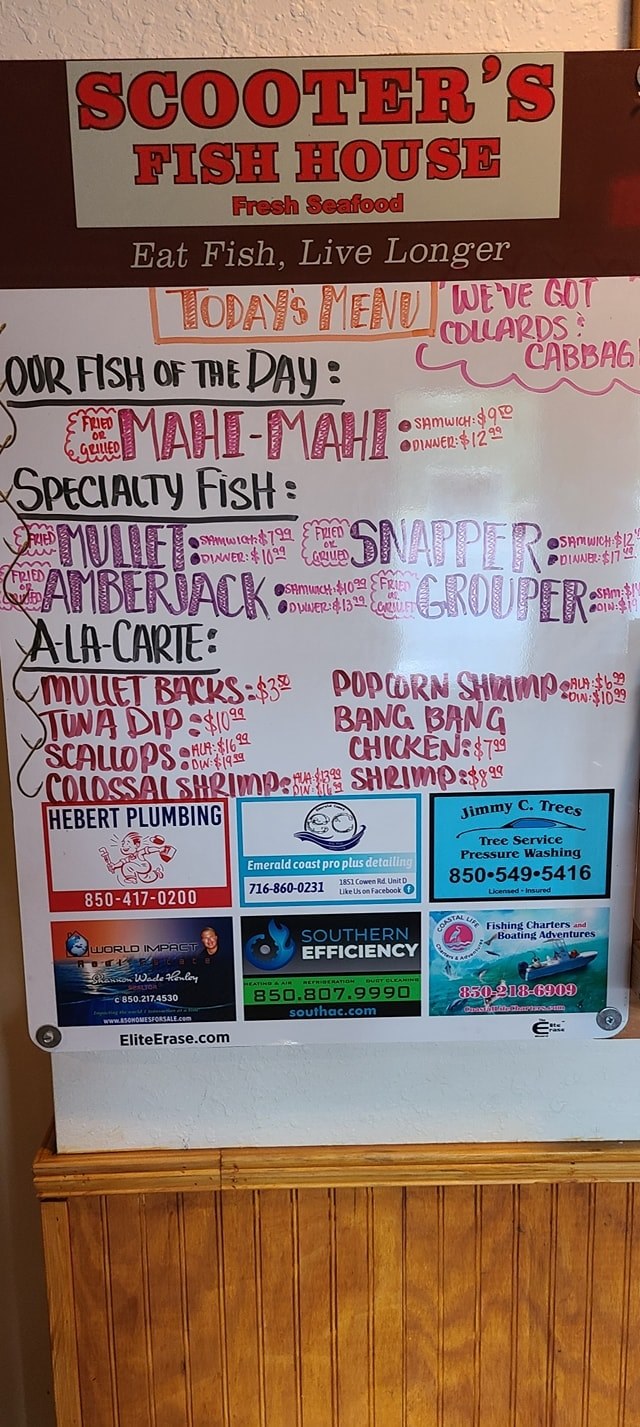 SCOOTER'S
FISH HOUSE
Fresh Seafood
Eat Fish, Live Longer
TODAY'S MENU
"WE'VE GOT
COLLARDS &
CABBAG
OUR FISH OF THE DAY:
FRIED OR GRILLED MAHI-MAHI • SAMWICH: $9.50
• DINNER: $12.99
SPECIALTY FISH:
FRIED MULLET • SAMWICH: $7.99 • DINNER: $10.99
FRIED OR GRILLED SNAPPER • SAMWICH: $12 • DINNER: $17
FRIED OR GRILLED AMBERJACK • SAMWICH: $10.99 • DINNER: $13.99
FRIED OR GRILLED GROUPER • SAM: • DIN:
A-LA-CARTE:
MULLET BACKS: $3.50
TUNA DIP: $10.99
SCALLOPS • ALA: $16.99 DIN: $19.99
COLOSSAL SHRIMP: ALA: $13.99 DIN: $16.99
POPCORN SHRIMP • ALA: $6.99 DIN: $10.99
BANG BANG
CHICKEN: $7.99
SHRIMP: $8.99
HEBERT PLUMBING
850-417-0200
Emerald coast pro plus detailing
716-860-0231
1851 Cowen Rd. Unit D
Like Us on Facebook
Jimmy C. Trees
Tree Service
Pressure Washing
850•549•5416
Licensed • Insured
WORLD IMPACT
Shannon Wade Henley
REALTOR
c 850.217.4530
www.850HOMESFORSALE.com
SOUTHERN
EFFICIENCY
HEATING & AIR REFRIGERATION DUCT CLEANING
850.807.9990
southac.com
COASTAL LIFE
Charters & Adventures
Fishing Charters and
Boating Adventures
850-218-6909
CoastalLifeCharters.com
EliteErase.com
The
Elite
Erase